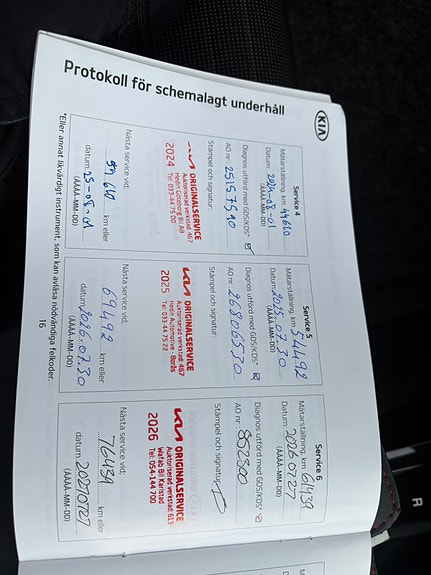 KIA
Protokoll för schemalagt underhåll
Service 4
Mätarställning, km 44610
Datum: 2024-08-01
(ÅÅÅÅ-MM-DD)
Diagnos utförd med GDS/KDS* ☑
AO nr: 2515.75.90
Stämpel och signatur:
KIA ORIGINALSERVICE
Auktoriserad verkstad 467
Hedin Göteborg Bil AB
Tel: 033-44 75 00
2024
Nästa service vid:
59 610 km eller
datum: 25-08-01
(ÅÅÅÅ-MM-DD)
Service 5
Mätarställning, km 54492
Datum: 2025.07.30
(ÅÅÅÅ-MM-DD)
Diagnos utförd med GDS/KDS* ☑
AO nr: 26806530
Stämpel och signatur:
KIA ORIGINALSERVICE
Auktoriserad verkstad 467
Hedin Automotive - Borås
Tel: 033-44 75 22
2025
Nästa service vid:
69492 km eller
datum: 2026.07.30
(ÅÅÅÅ-MM-DD)
Service 6
Mätarställning, km 61439
Datum: 20260727
(ÅÅÅÅ-MM-DD)
Diagnos utförd med GDS/KDS* ☑
AO nr: 852300
Stämpel och signatur:
KIA ORIGINALSERVICE
Auktoriserad verkstad 613
Wafab Bil Karlstad
Tel: 054-144 700
2026
Nästa service vid:
76439 km eller
datum: 20270727
(ÅÅÅÅ-MM-DD)
*Eller annat likvärdigt instrument, som kan avläsa nödvändiga felkoder.
16
R